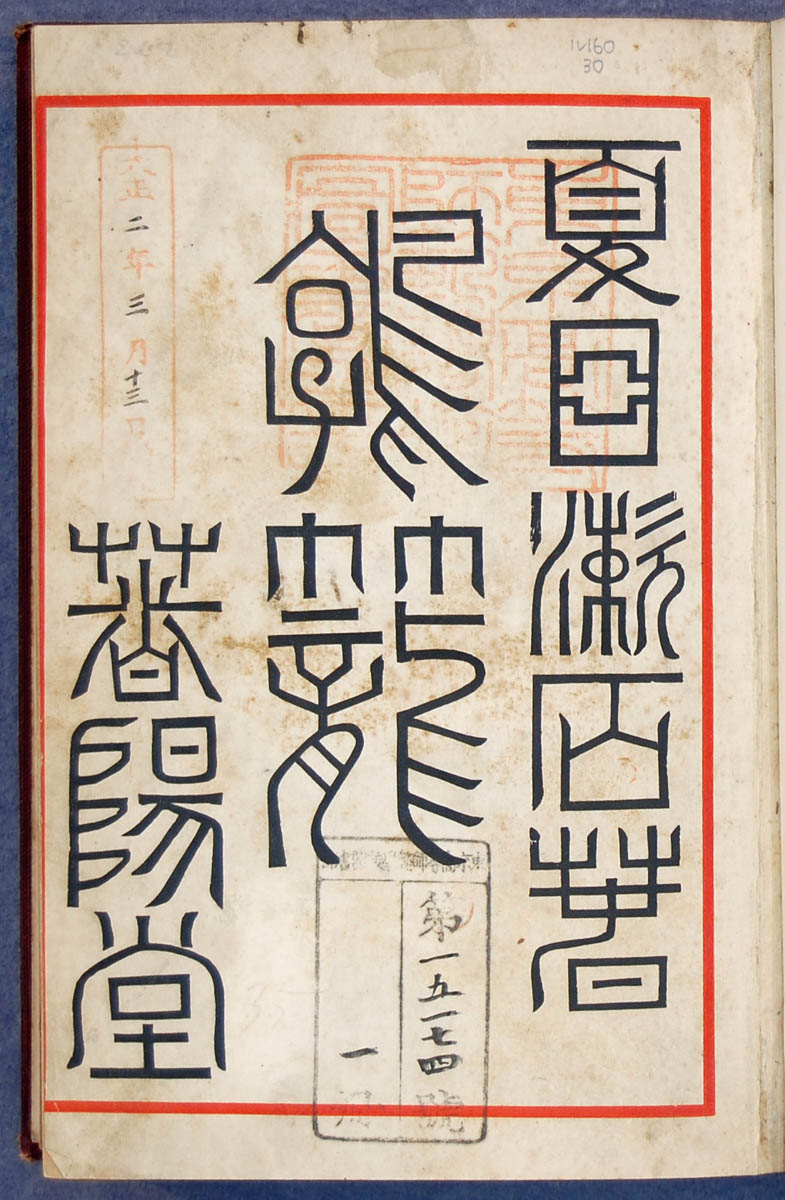 1V160
30
夏目漱石著
鶉籠
春陽堂
大正二年三月十三日
第一五一七四號
一冊